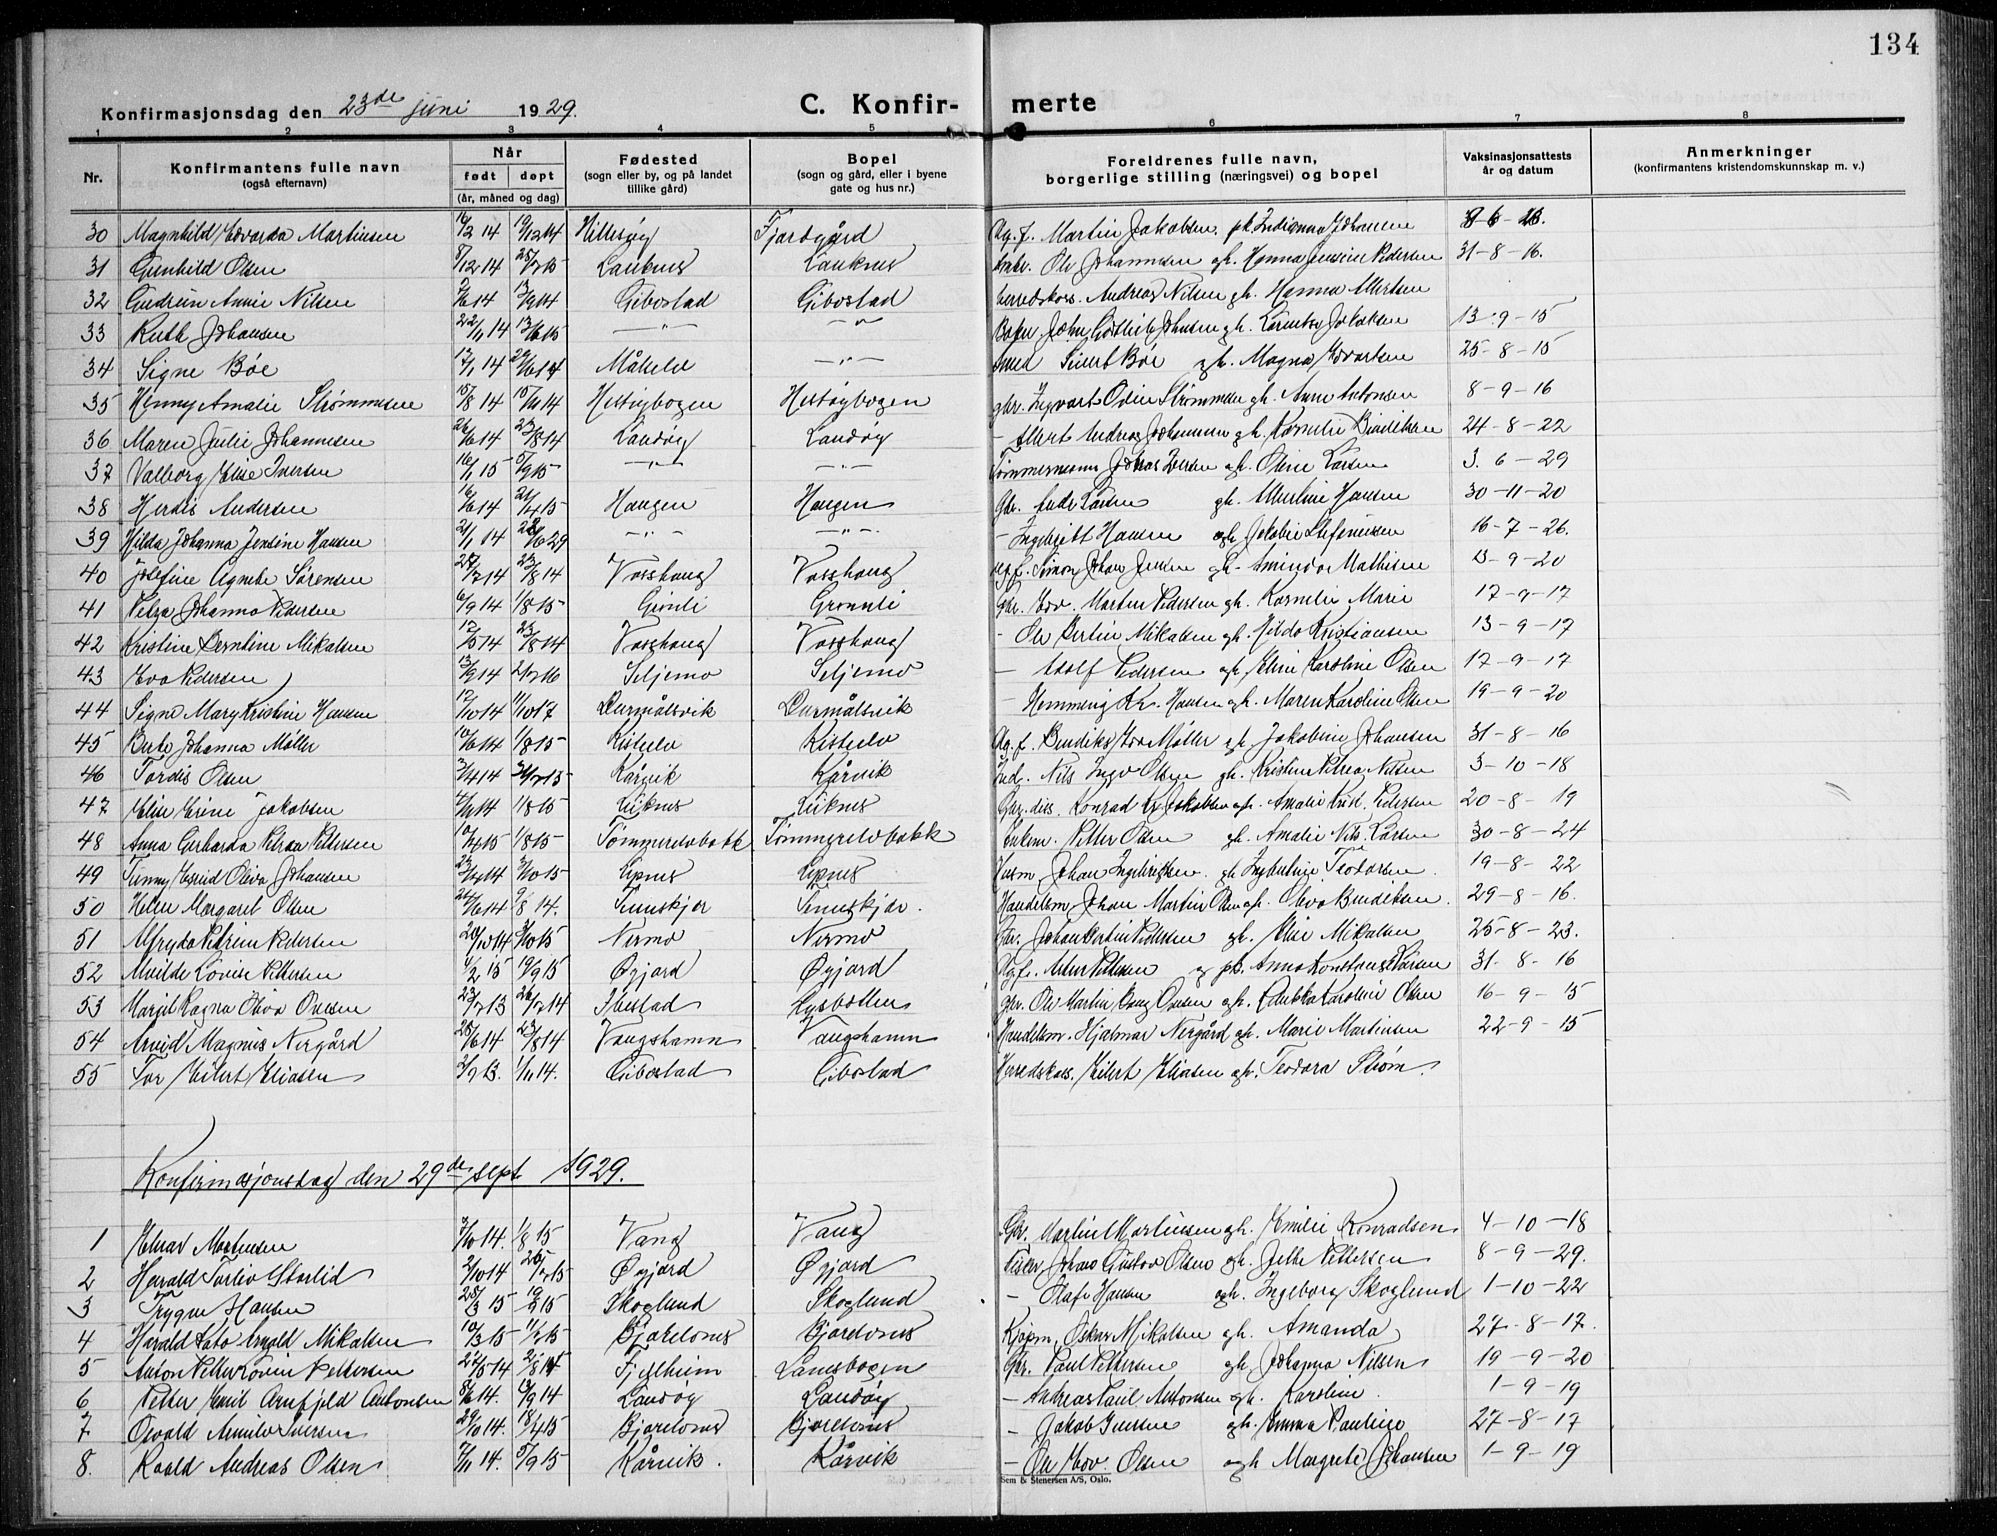 134
Konfirmasjonsdag den 23de juni 1929. C. Konfir- merte
1 2 3 4 5 6 7 8
Nr. Konfirmantens fulle navn (også efternavn) Når født døpt (år, måned og dag) Fødested (sogn eller by, og på landet tillike gård) Bopel (sogn og gård, eller i byene gate og hus nr.) Foreldrenes fulle navn, borgerlige stilling (næringsvei) og bopel Vaksinasjonsattests år og datum Anmerkninger (konfirmantens kristendomskunnskap m. v.)
30 Magnhild Edvarda Martinsen 16/2 14 19/12 14 Hillesøy Fjordgård Ug.f. Martin Jakobsen pk. Indianna Johansen
31 Gunhild Olsen 8/12 14 Lauknes Lauknes Ole Johannesen gh. Hanna Jensine Pedersen 31-8-16.
32 Gudrun Annie Nilsen 14 Gibostad Gibostad herredskass. Andreas Nilsen gh. Hanna Albertsen
33 Ruth Johansen 22/1 14 13/6 15 —"— —"— Baker John Gotlieb Johansen gh. Jakobsen 13-9-15
34 Signe Bøe 17/1 14 29/6 14 Målselv —"— Smed Sivert Bøe gh. Magna Edvartsen 25-8-15
35 Henny Amalie Strømmesen 15/8 14 15/11 14 Hestøybogen Hestøybogen gbr. Ingvart Odin Strømmesen gh. Anna Antonsen 8-9-16
36 Maren Julie Johannesen 26/6 14 23/8 14 Landøy Landøy — Albert Andreas Johannesen gh. Kornelie Bendiksen 24-8-22
37 Valborg Elise Iversen 16/1 15 5/9 15 —"— —"— Tømmermann Johas Iversen gh. Oline Larsen 3.6-29
38 Herdis Andersen 16/6 14 21/4 15 Haugen Haugen Gbr. Andr. Larsen gh. Albertine Hansen 30-11-20
39 Hilda Johanna Jensine Hansen 21/1 14 22/6 29 —"— —"— — Ingebrigt Hansen gh. Jakobie Stefanussen 16-7-26.
40 Josefine Agnete Sørensen 27/7 14 23/8 14 Vasshaug Vasshaug Ug.f. Simon Johan Jensen gh. Aminda Mathisen 13-9-20
41 Petra Johanna Pedersen 6/9 14 1/8 15 Grønli Grønnli Gbr. Edv. Martin Pedersen gh. Kornelie Marie 17-9-17
42 Kristine Berntine Mikalsen 12/5 14 23/8 14 Vasshaug Vasshaug — Ole Bertin Mikalsen gh. Hilda Kristiansen 13-9-17
43 Eva Pedersen 13/9 14 Seljemo Seljemo — Adolf Pedersen gh. Eline Karoline Olsen 17-9-17
44 Signe Mary Kristine Hansen 12/10 14 11/10 17 Durmålsvik Durmålsvik — Hemming Kr. Hansen gh. Maren Karoline Olsen 19-9-20
45 Berte Johanna Møller 10/6 14 1/8 15 Kistelv Kistelv Ug.f. Bendiks Edv. Møller gh. Jakobine Johansen 31-8-16
46 Tordis Olsen 3/4 14 Kårvik Kårvik Ind. Nils Ingv. Olsen gh. Kristine Petrea Nilsen 3-10-18
47 Elise Eveine Jakobsen 14 1/8 15 Leiknes Leiknes Gbr. Konrad Jakobsen gh. Amalie Krist. Pedersen 20-8-19
48 Anna Gerharda Petrea Pettersen 10/4 15 1/8 15 Tømmerelvbakk Tømmerelvbakk Enkem. Petter Olsen gh. Amalie Nils. Larsen 30-8-24
49 Fanny Astrid Oleva Johansen 23/4 14 3/10 15 Lysnes Lysnes Husm. Johan Ingebrigtsen gh. Teodorsen 19-8-22
50 Helen Margaret Olsen 26/6 14 9/8 14. Finnskjer Finnskjer. Handelsm. Johan Martin Olsen gh. Oleva Bendiksen. 29-8-16.
51 Alfryda Petrine Pedersen 20/10 14 3/10 15 Nermo Nermo Gbr. Johan Bertin Pedersen gh. Elise Mikalsen 25-8-23.
52 Alvilde Lovise Pettersen 1/2 15 19/9 15 Øyjord Øyjord Ug.f. Artur Pettersen og pk. Anna Konstanse Larsen 31-8-16
53 Margit Ragna Oliva Ovesen 23/7 13 26/7 14 Ibestad Lysbotten gbr. Ole Martin Ovesen gh. Karoline Olsen 16-9-15
54 Arvid Magnus Nergård 28/6 14 23/8 14 Vangshamn Vangshamn Handelsm. Hjalmar Nergård gh. Marie Martinsen 22-9-15
55 Tor Eilert Eliasen 3/9 13. 1/11 14. Gibostad Gibostad Herredskass. Eilert Eliasen gh. Teodora Strøm.
Konfirmasjonsdag den 29de sept 1929.
1 Elnar Martinsen 3/10 14. 1/8 15 Vang Vang Gbr. Martin Martinsen gh. Emilie Konradsen 4-10-18
2 Harald Torleiv Storlid 2/10 14 Øyjord Øyjord Fisker Johan Gustav Olsen gh. Jette Pettersen 8-9-29.
3 Trygve Hansen 28/3 15 15 Skoglund Skoglund — Olaf Hansen gh. Ingeborg Skoglund 1-10-22
4 Harald Arnold Mikalsen 10/3 15 Bjorelvnes Bjorelvnes Kjøpm. Oskar Mikalsen gh. Amanda 27-8-17.
5 Anton Petter Lovin Pettersen 27/5 14 Fjellheim Lamsbogen Gbr. Paul Pettersen gh. Johanna Nilsen 19-9-20
6 Petter Emil Arnfjeld Antonsen 8/6 14. 13/9 14 Landøy Landøy — Andreas Paul Antonsen gh. Karoline. 1-9-19
7 Osvald Iversen 29/10 14. 18/4 15 Bjorelvnes Bjorelvnes — Jakob Iversen gh. Emma Pauline 27-8-17
8. Roald Andreas Olsen 7/11 14. 5/9 15 Kårvik. Kårvik — Ole Edv. Olsen gh. Margrete Johansen 1-9-19
Sem & Stenersen A/S, Oslo.